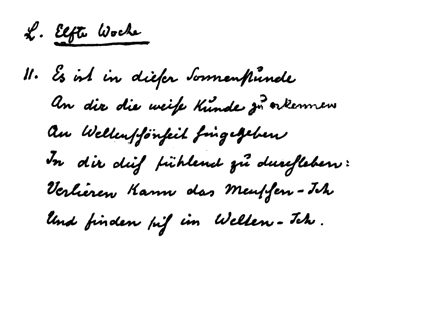 L. Elfte Woche
11. Es ist in dieser Sonnenstunde
An dir die weise Kunde zu erkennen
An Weltenschönheit hingegeben
In dir dich fühlend zu durchleben:
Verlieren kann das Menschen-Ich
Und finden sich im Welten-Ich.